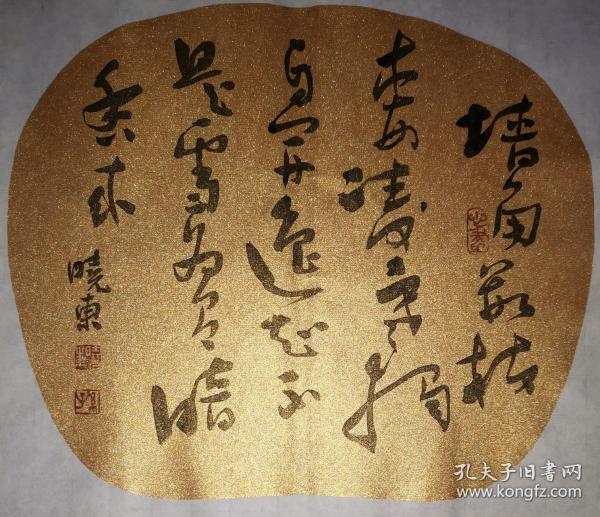 墙角数枝
梅凌寒独
自开遥知不
是雪为有暗
香来
晓东
孔夫子旧书网
www.kongfz.com